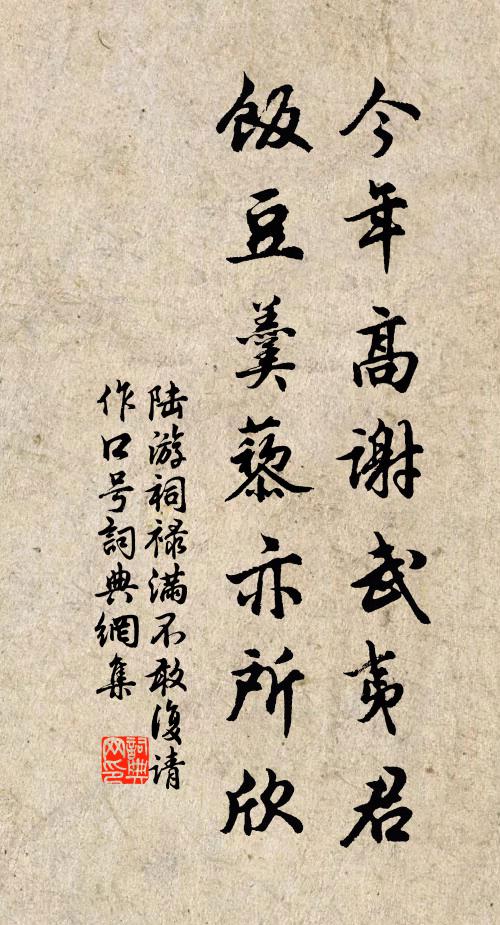 今年高谢武夷君
饭豆羹藜亦所欣
陆游祠禄满不敢复请
作口号词典網集
詞典網印